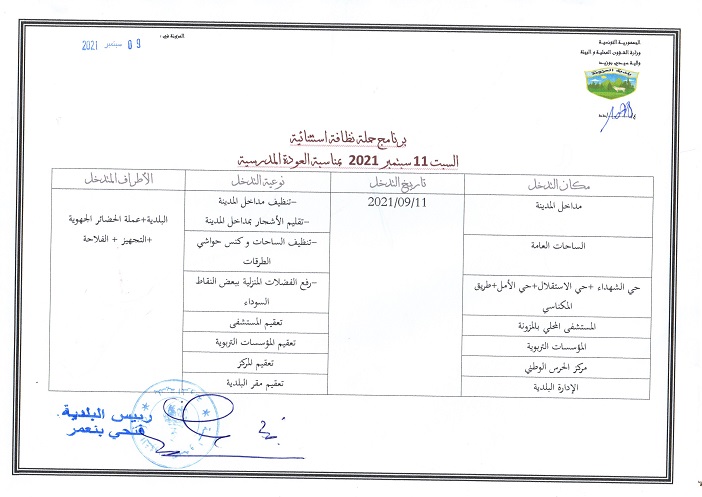 الجمهورية التونسية
وزارة الشؤون المحلية و البيئة
ولاية سيدي بوزيد
المزونة في :
09 سبتمبر 2021
برنامج حملة نظافة استثنائية
السبت 11 سبتمبر 2021 بمناسبة العودة المدرسية
مكان التدخل
تاريخ التدخل
نوعية التدخل
الأطراف المتدخل
مداخل المدينة
2021/09/11
-تنظيف مداخل المدينة
-تقليم الأشجار بمداخل المدينة
البلدية+عملة الحضائر الجهوية
+التجهيز + الفلاحة
الساحات العامة
-تنظيف الساحات و كنس حواشي
الطرقات
حي الشهداء +حي الاستقلال+حي الأمل+طريق
المكناسي
-رفع الفضلات المنزلية ببعض النقاط
السوداء
المستشفى المحلي بالمزونة
تعقيم المستشفى
المؤسسات التربوية
تعقيم المؤسسات التربوية
مركز الحرس الوطني
تعقيم المركز
الإدارة البلدية
تعقيم مقر البلدية
رئيس البلدية
فتحي بنعمر